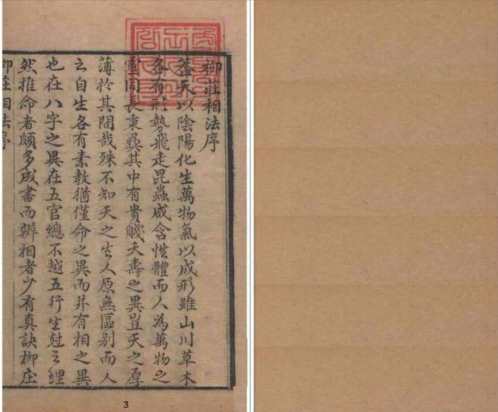 柳莊相法序
蓋天以陰陽化生萬物氣以成形雖山川草木
各有形勢飛走昆蟲咸含性體而人為萬物之
靈同長秉彝其中有貴賤夭壽之異豈天之厚
薄於其間哉殊不知天之生人原無區别而人
之自生各有素教猶僅命之異而并有相之異
也在八字之異在五官總不越五行生尅之理
然推命者頗多成書而辨相者少有真訣柳庄
柳莊相法序
3